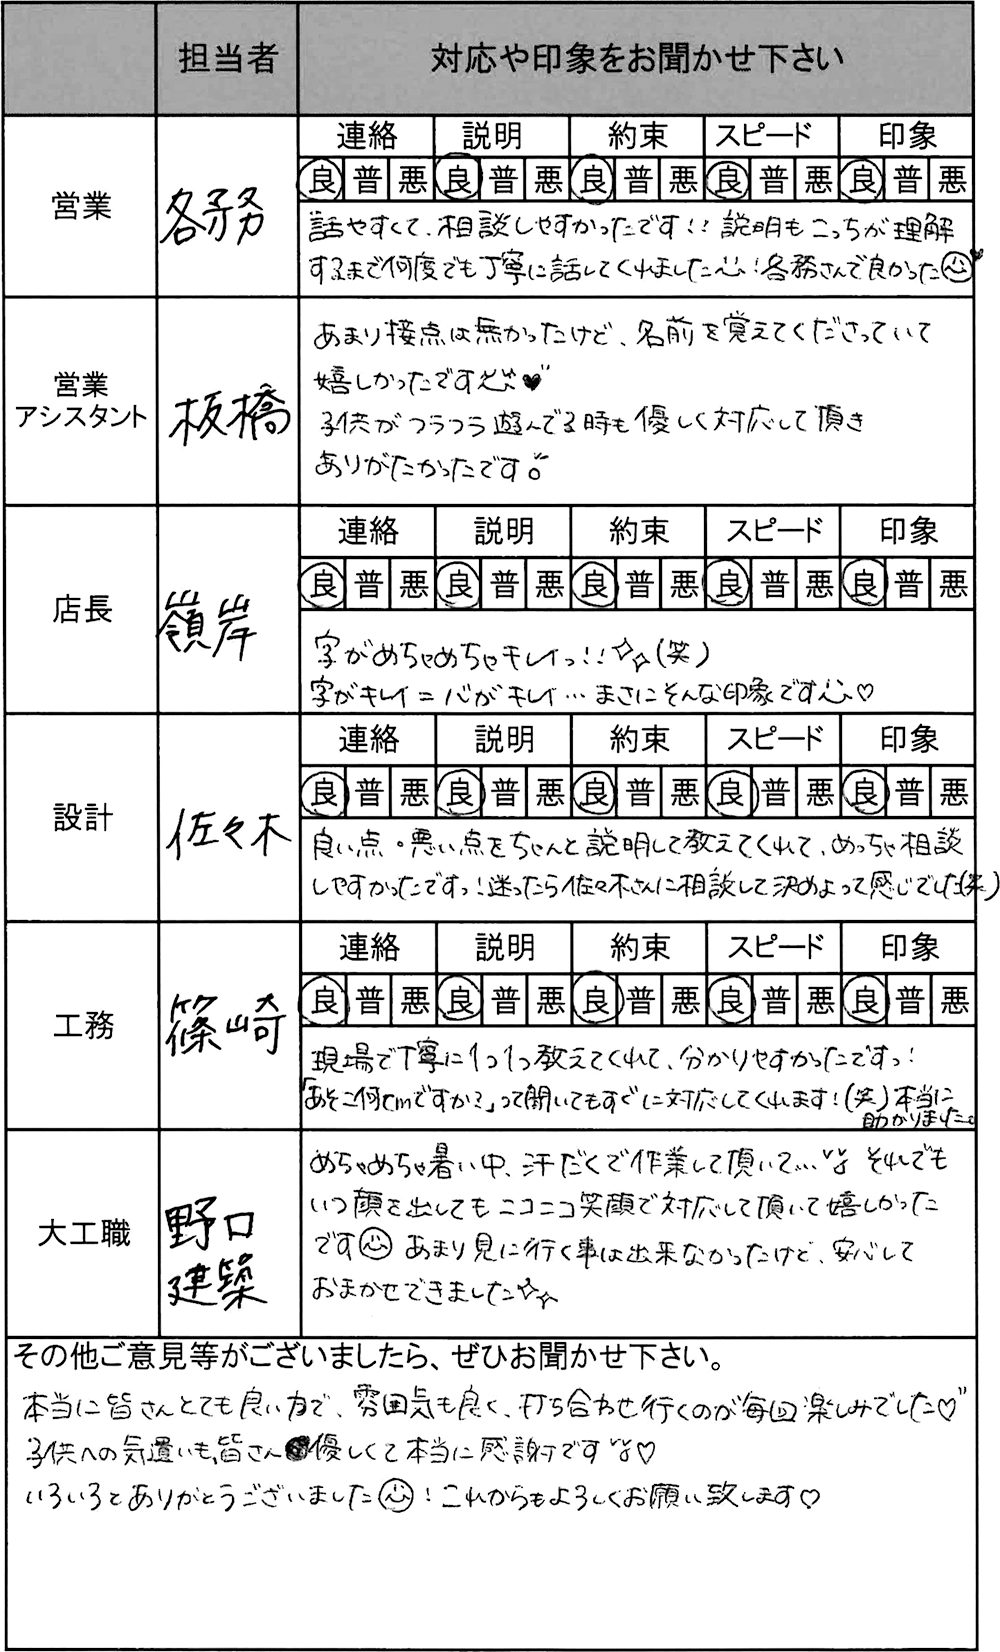 担当者 対応や印象をお聞かせ下さい
営業 各務
連絡 説明 約束 スピード 印象
良 普 悪 良 普 悪 良 普 悪 良 普 悪 良 普 悪
話やすくて、相談しやすかったです!! 説明もこっちが理解
するまで何度でも丁寧に話してくれました!各務さんで良かった
営業
アシスタント 板橋
あまり接点は無かったけど、名前を覚えてくださっていて
嬉しかったです♥
子供がフラフラ遊んでる時も優しく対応して頂き
ありがたかったです。
店長 嶺岸
連絡 説明 約束 スピード 印象
良 普 悪 良 普 悪 良 普 悪 良 普 悪 良 普 悪
字がめちゃめちゃキレイっ!!(笑)
字がキレイ=心がキレイ…まさにそんな印象です♡
設計 佐々木
連絡 説明 約束 スピード 印象
良 普 悪 良 普 悪 良 普 悪 良 普 悪 良 普 悪
良い点・悪い点をちゃんと説明して教えてくれて、めっちゃ相談
しやすかったですっ!迷ったら佐々木さんに相談して決めよって感じでした(笑)
工務 篠崎
連絡 説明 約束 スピード 印象
良 普 悪 良 普 悪 良 普 悪 良 普 悪 良 普 悪
現場で丁寧に1つ1つ教えてくれて、分かりやすかったですっ!
「あそこ何cmですか?」って聞いてもすぐに対応してくれます!(笑)本当に
助かりました。
大工職 野口
建築
めちゃめちゃ暑い中、汗だくで作業して頂いて… それでも
いつ顔を出してもニコニコ笑顔で対応して頂いて嬉しかった
です あまり見に行く事は出来なかったけど、安心して
おまかせできました
その他ご意見等がございましたら、ぜひお聞かせ下さい。
本当に皆さんとても良い方で、雰囲気も良く、打ち合わせ行くのが毎回楽しみでした♡
子供への気遣いも、皆さん優しくて本当に感謝です♡
いろいろとありがとうございました!これからもよろしくお願い致します♡